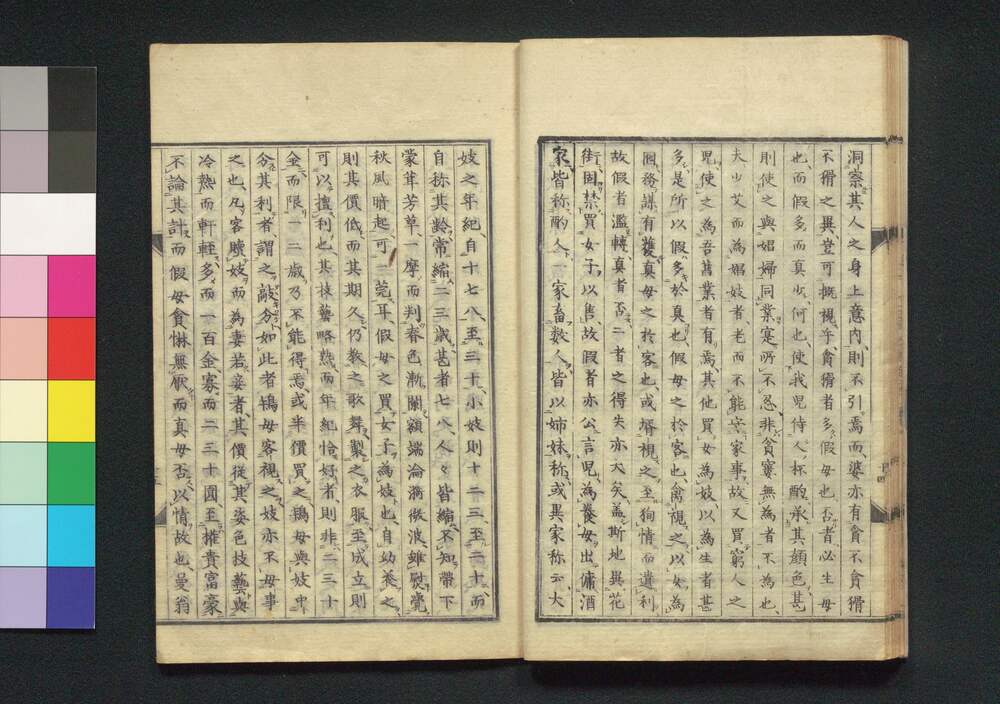 洞察其人之身上意内、則不引焉、而婆亦有貪不貪猾
不猾之異、豈可概視乎、貪猾者多、假母也、否者必生母
也、而假多而真少、何也、使我児待人、杯酌承其顔色、甚
則使之與娼婦同業、寔所不忍、非貧寠無為者不為也、
夫少艾而為娼妓者、老而不能守家事、故又買窮人之
児、使之為吾舊業者有焉、其他買女為妓、以為生者甚
多、是所以假多於真也、假母之於客也、禽視之、以女為
囮、務謀有獲、真母之於客也、或壻視之、至狥情而遺利
故假者濫、轉真者否、二者之得失亦大矣、盖斯地異花
街、固禁買女子以售、故假者亦公言児為養母出傭酒
家、皆称酌人、一家畜数人、皆以姉妹称、或異家称云、大
妓之年紀、自十七八至三十、小妓則十二三至二十、而
自称其齡常縮二三歳、甚者七八、人々皆縮、不知帶下
蒙茸芳草一摩而判、春色漸闌、額端淪漪微波、雖熨竟
秋風暗起、可一莞耳、假母之買女子為妓也、自幼養之、
則其價低而其期久、仍教之歌舞、製之衣服、至成立則
可以擅利也、其技藝略熟而年紀恰好者、則非二三十
金而限一二歳乃不能得焉、或半價買之、鴇母與妓中
分其利者、謂之敲分、如此者鴇母客視之、妓亦不母事
之也、凡客贖妓而為妻若妾者、其價從其姿色技藝與
冷熱而軒輊、多而一百金、寡而二三十圓、至權貴富豪
不論其計、而假母貪惏無厭、而真母否、以情故也、曼翁